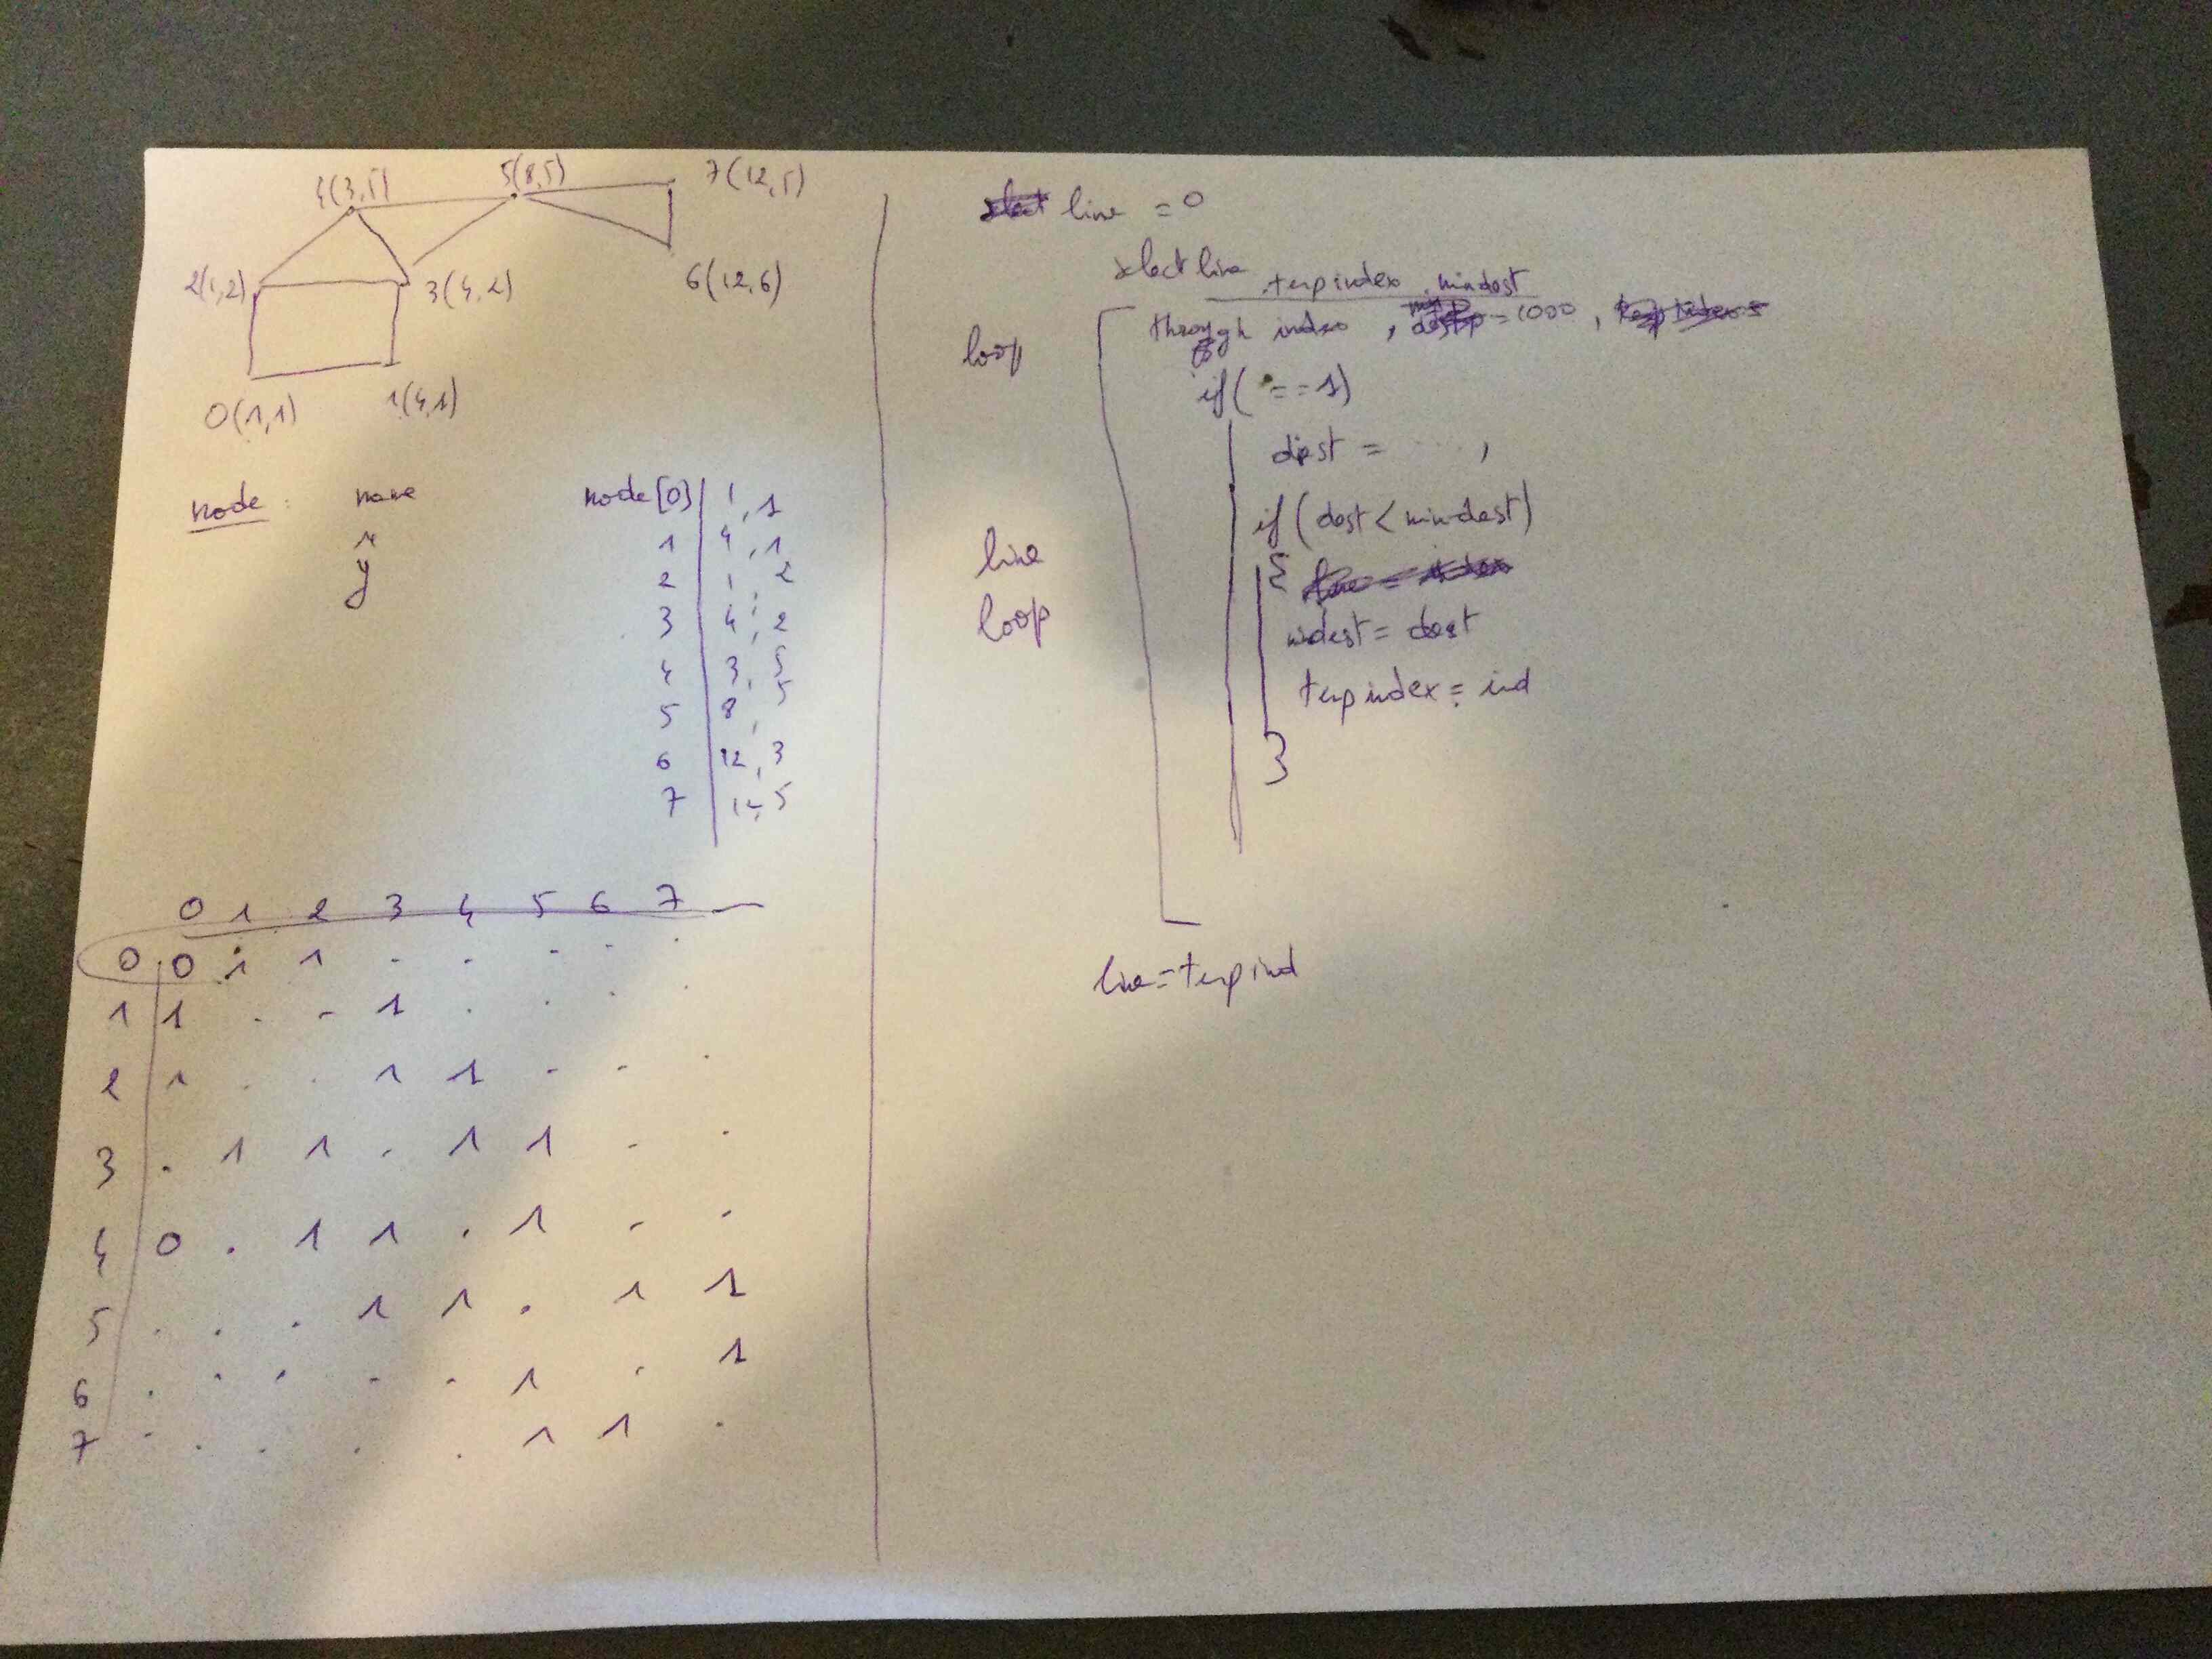 4(3,5) 5(8,5) 7(12,5)
2(1,2) 3(4,2) 6(12,6)
0(1,1) 1(4,1)
node : name node[0] 1,1
x 1 4,1
y 2 1,2
3 4,2
4 3,5
5 8,5
6 12,3
7 12,5
0 1 2 3 4 5 6 7
0 0 1 1 . . . . .
1 1 . . 1 . . . .
2 1 . . 1 1 . . .
3 . 1 1 . 1 1 . .
4 0 . 1 1 . 1 . .
5 . . . 1 1 . 1 1
6 . . . . . 1 . 1
7 . . . . . 1 1 .
line = 0
select line
tempindex, mindest
loop through index, = 1000,
if( ==1)
dist = ..... ,
if (dest < mindest)
line {
loop mindest = dest
tempindex = ind
}
line = tempind